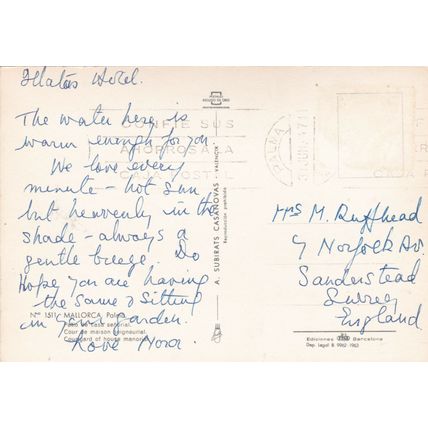 Illatas Hotel.
The water here is
warm enough for you
We love every
minute – hot sun
but heavenly in the
shade – always a
gentle breeze. Do
Hope you are having
the same & sitting
in your garden.
Love Nora.
Nº 1511 MALLORCA, Palma
Patio de casa señorial.
Cour de maison seigneuriale.
Courtyard of house manorial.
CONFIE SUS
AHORROS A LA
CAJA POSTAL
PALMA
A. SUBIRATS CASANOVAS - VALENCIA
Reproducción prohibida
Mrs M. Ruffhead
9 Norfolk Av.
Sanderstead
Surrey
England
Ediciones Barcelona
Dep. Legal B. 9962 - 1963